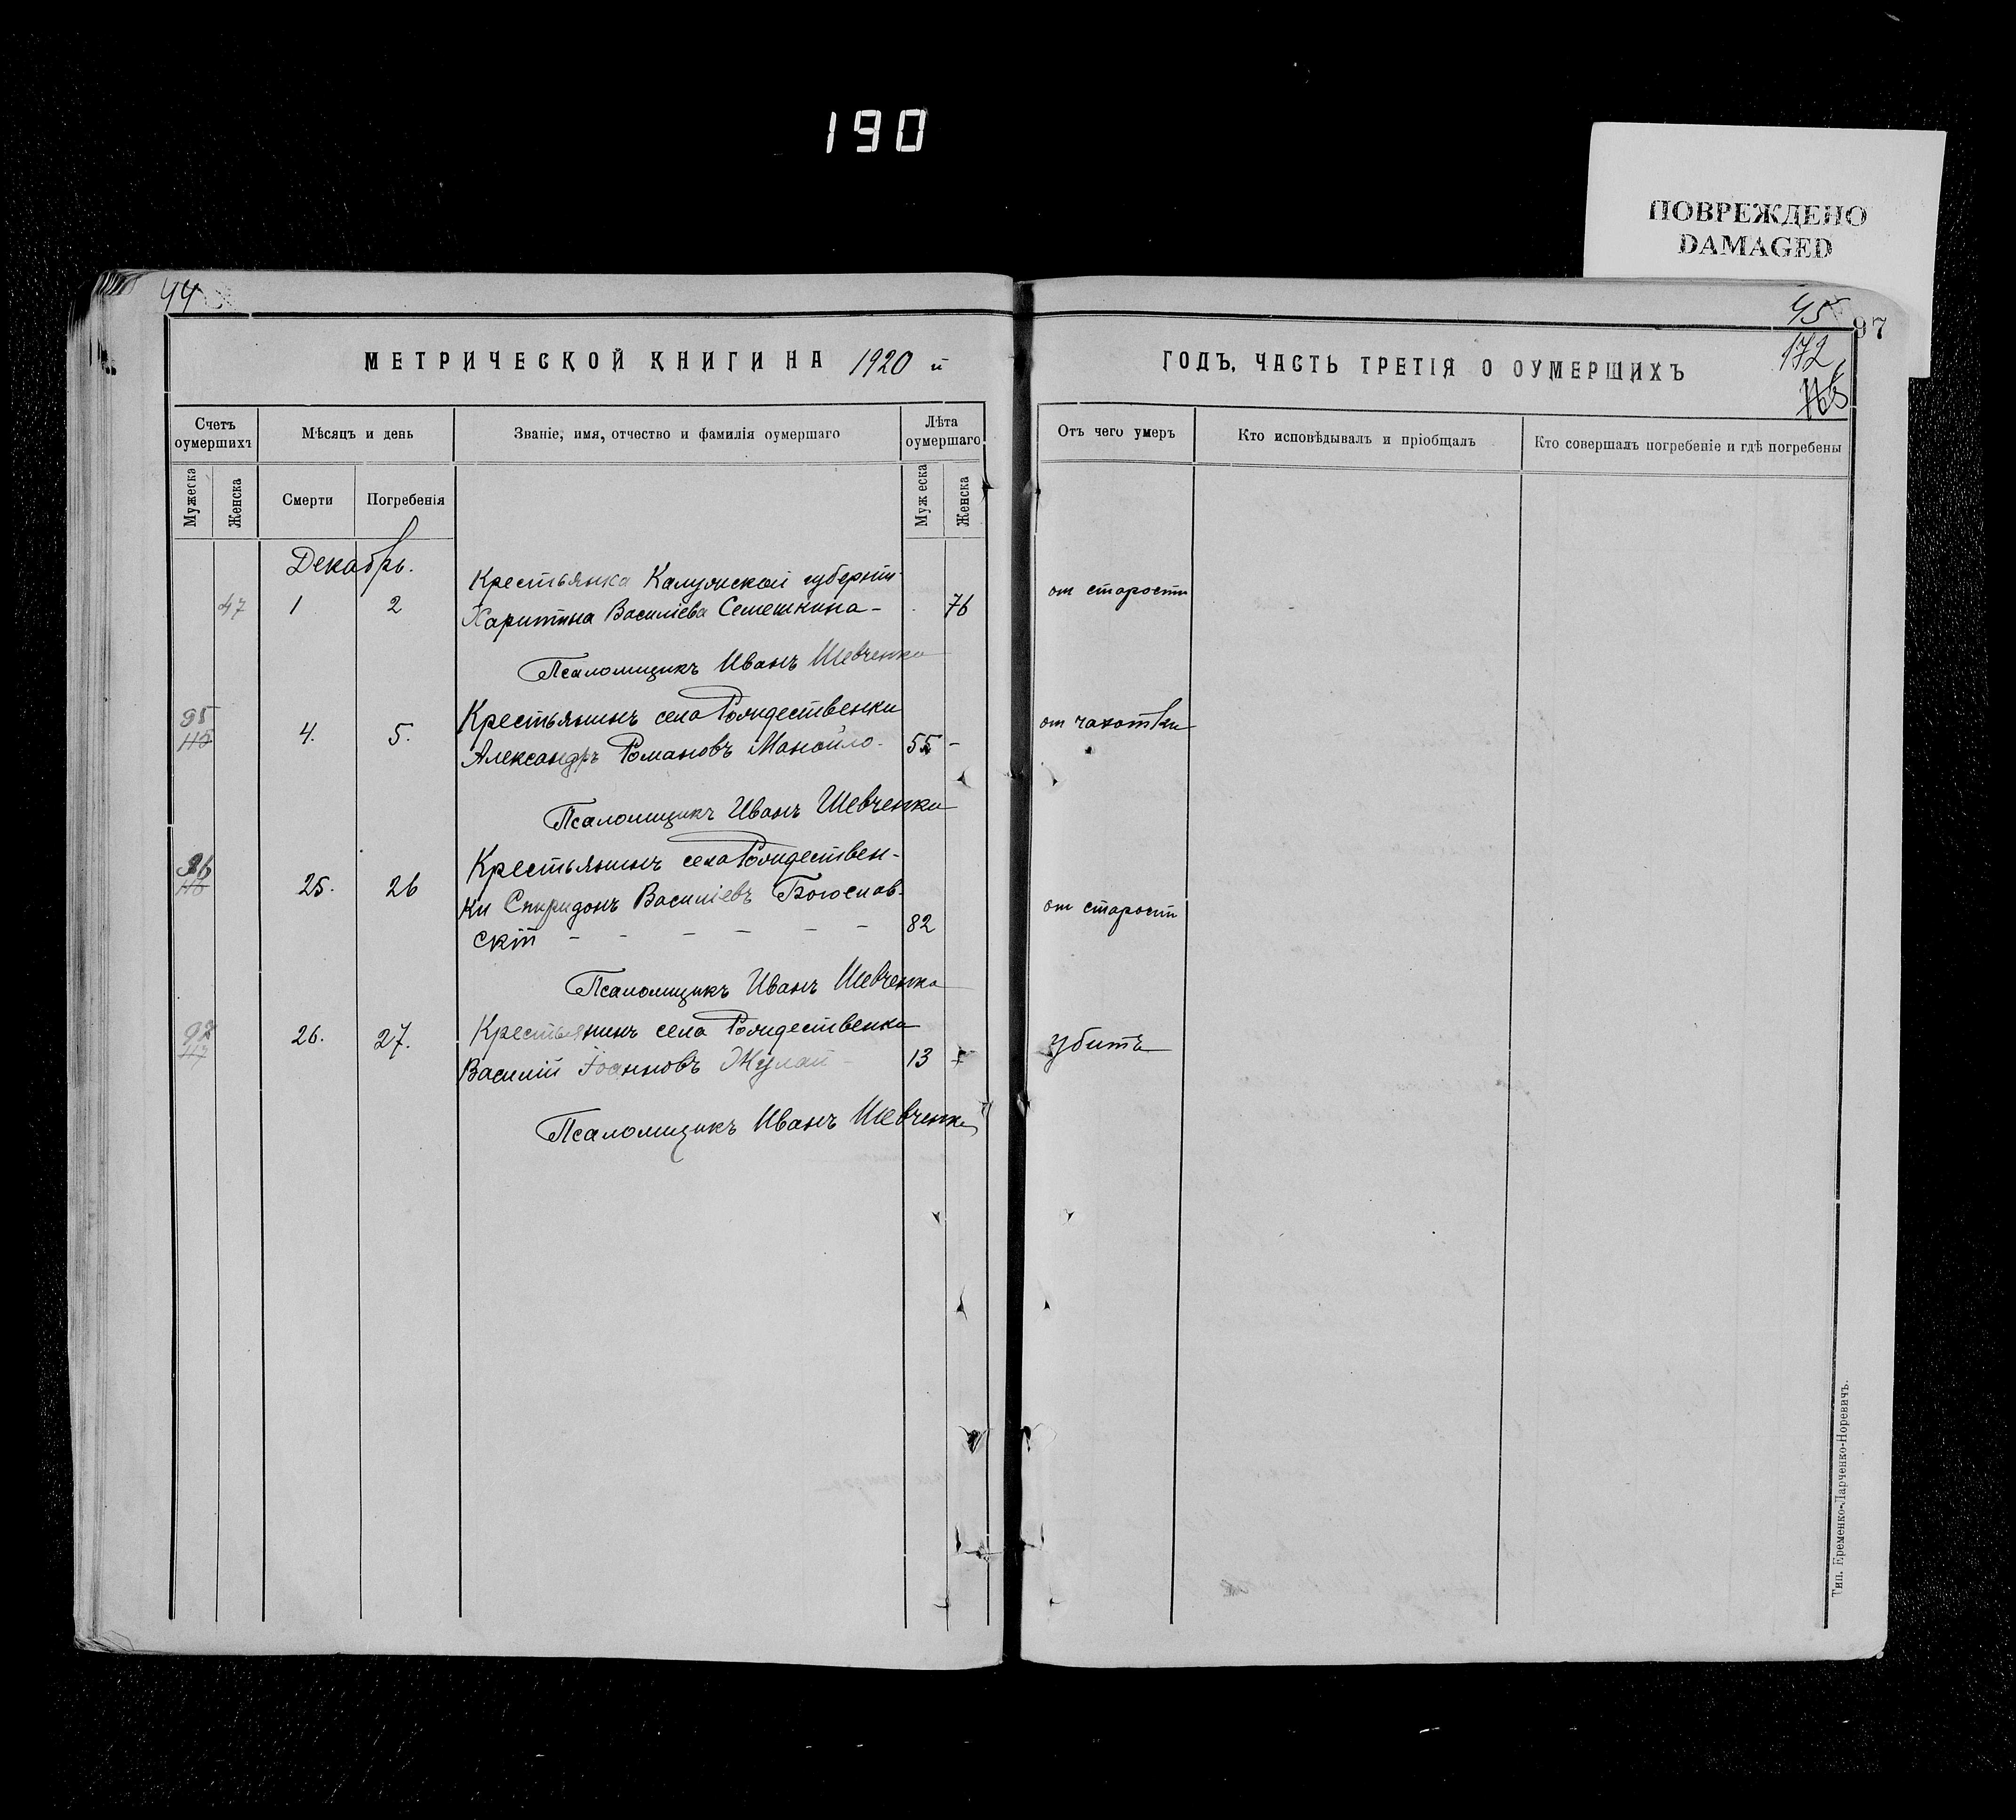 190
ПОВРЕЖДЕНО
DAMAGED
44
45
97
172
МЕТРИЧЕСКОЙ КНИГИ НА 1920 й
ГОДЪ, ЧАСТЬ ТРЕТІЯ О ОУМЕРШИХЪ
Счетъ оумершихъ
Мѣсяцъ и день
Званіе, имя, отчество и фамилія оумершаго
Лѣта оумершаго
Отъ чего умеръ
Кто исповѣдывалъ и пріобщалъ
Кто совершалъ погребеніе и гдѣ погребены
Мужеска
Женска
Смерти
Погребенія
Муж еска
Женска
Декабрь.
Крестьянка Калужской губерніи
47 1 2 Харитина Василіева Семешкина - 76 от старости
Псаломщикъ Иванъ Шевченко
95 Крестьянинъ села Рождественки
115 4. 5. Александръ Романовъ Манойло - 55 - от чахотки
Псаломщикъ Иванъ Шевченко
96 Крестьянинъ села Рождествен-
116 25. 26 ки Спиридонъ Василіевъ Богослав-
скій - - - - - - 82 от старости
Псаломщикъ Иванъ Шевченко
97 26. 27. Крестьянинъ села Рождественки
117 Василій Іоанновъ Жулай - 13 убитъ
Псаломщикъ Иванъ Шевченко
Тип. Еременко-Ларченко-Норевичъ.